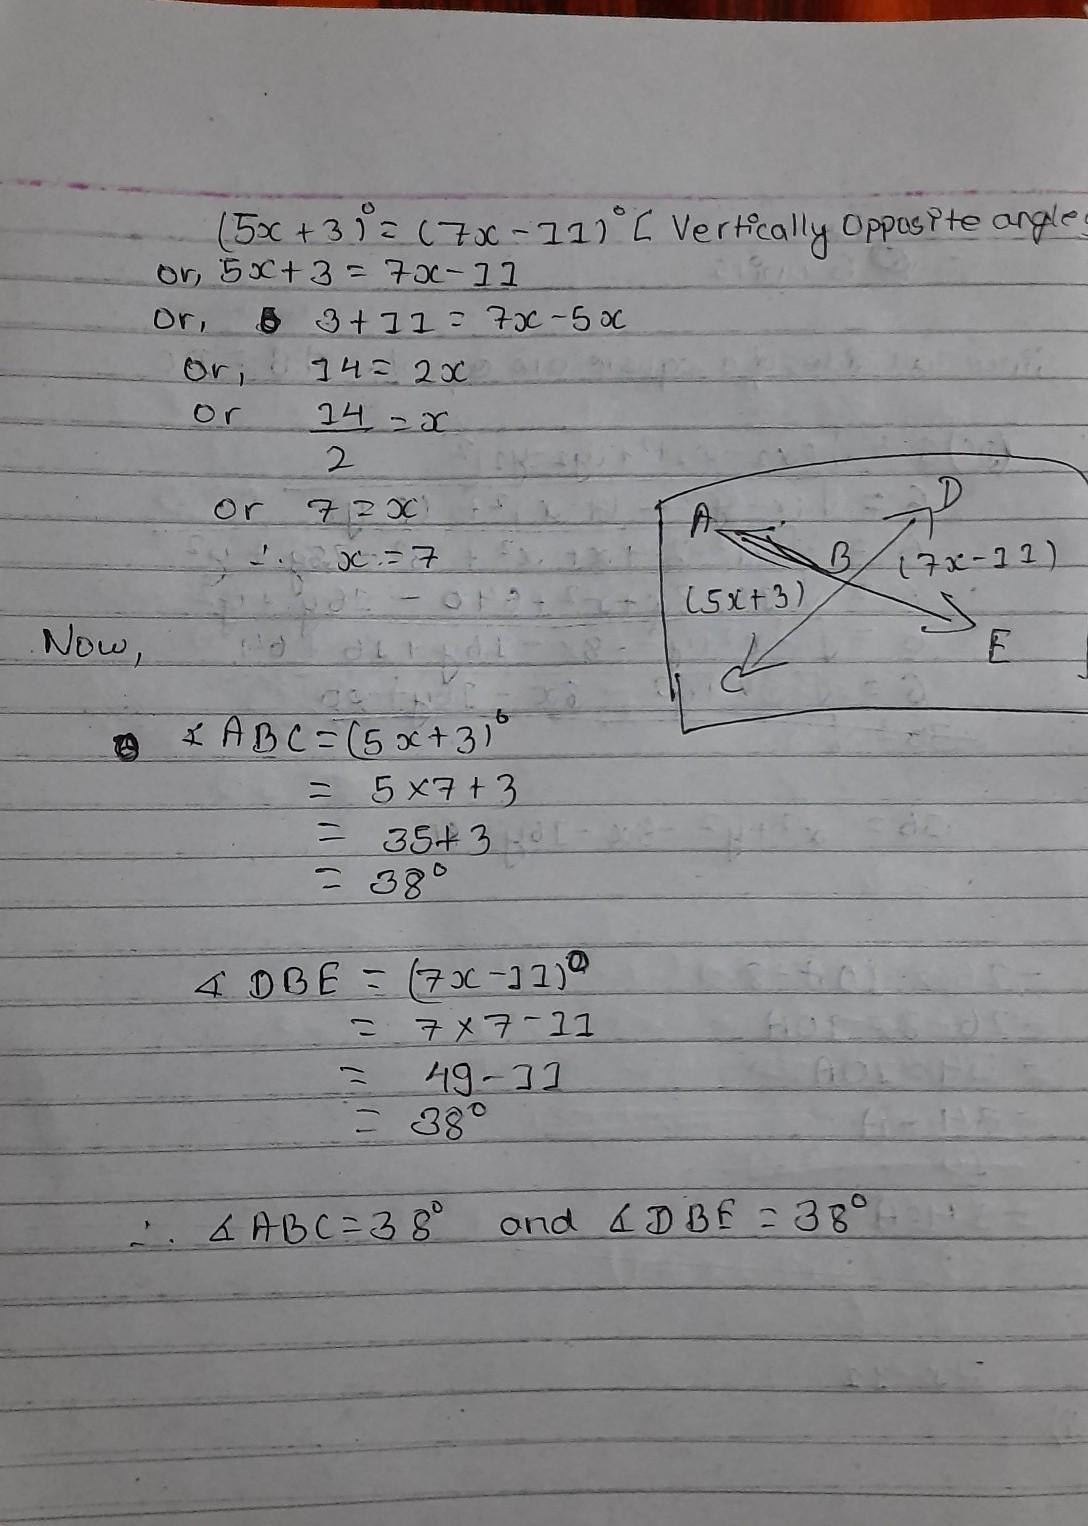 (5x+3)° = (7x-11)° [ Vertically Opposite angles
or, 5x+3 = 7x-11
or, 3+11 = 7x-5x
or, 14 = 2x
or 14/2 = x
or 7 = x
∴ x = 7
A
D
B
(7x-11)
(5x+3)
E
C
Now,
∡ ABC = (5x+3)°
= 5×7+3
= 35+3
= 38°
∡ DBE = (7x-11)°
= 7×7-11
= 49-11
= 38°
∴ ∡ ABC = 38° and ∡ DBE = 38°